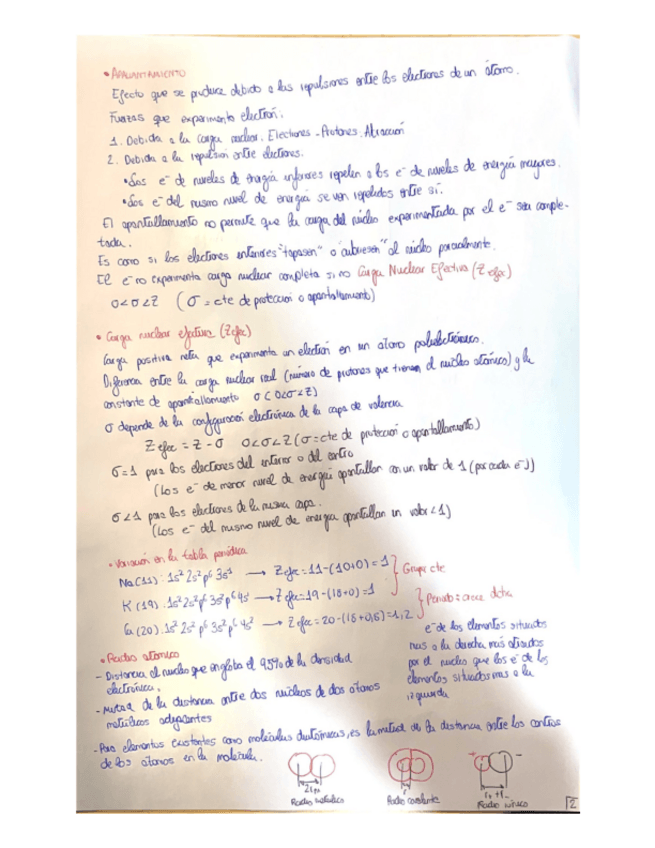 • APANTALLAMIENTO
Efecto que se produce debido a las repulsiones entre los electrones de un átomo.
Fuerzas que experimenta electrón:
1. Debida a la carga nuclear. Electrones-Protones. Atracción
2. Debida a la repulsión entre electrones.
• Los e⁻ de niveles de energía inferiores repelen a los e⁻ de niveles de energía mayores.
• Los e⁻ del mismo nivel de energía se ven repelidos entre sí.
El apantallamiento no permite que la carga del núcleo experimentada por el e⁻ sea comple-
tada.
Es como si los electrones interiores "tapasen" o "cubriesen" al núcleo parcialmente.
El e⁻ no experimenta carga nuclear completa si no Carga Nuclear Efectiva (Z efec)
0<σ<Z (σ = cte de protección o apantallamiento)
• Carga nuclear efectiva (Zefec)
Carga positiva neta que experimenta un electrón en un átomo polielectrónico.
Diferencia entre la carga nuclear real (número de protones que tienen el núcleo atómico) y la
constante de apantallamiento σ (0<σ<Z)
σ depende de la configuración electrónica de la capa de valencia
Z efec = Z - σ 0<σ<Z (σ = cte de protección o apantallamiento)
σ=1 para los electrones del interior o del centro
(Los e⁻ de menor nivel de energía apantallan con un valor de 1 (por cada e⁻))
σ<1 para los electrones de la misma capa.
(Los e⁻ del mismo nivel de energía apantallan un valor <1)
• Variación en la tabla periódica
Na(11): 1s² 2s² p⁶ 3s¹ → Z efec = 11-(10+0) = 1
K (19): 1s² 2s² p⁶ 3s² p⁶ 4s¹ → Z efec = 19-(18+0) = 1
Grupo: cte
Ca (20): 1s² 2s² p⁶ 3s² p⁶ 4s² → Z efec = 20-(18+0,8) = 1,2
Periodo: crece dcha
e⁻ de los elementos situados
mas a la derecha más atraidos
por el núcleo que los e⁻ de los
elementos situados mas a la
izquierda
• Radio atómico
- Distancia al nucleo que engloba el 95% de la densidad
electrónica.
- Mitad de la distancia entre dos núcleos de dos átomos
metálicos adyacentes
- Para elementos existentes como moléculas diatómicas, es la mitad de la distancia entre los centros
de los átomos en la molécula.
+ -
r
Radio metálico
Radio covalente
Radio iónico
2